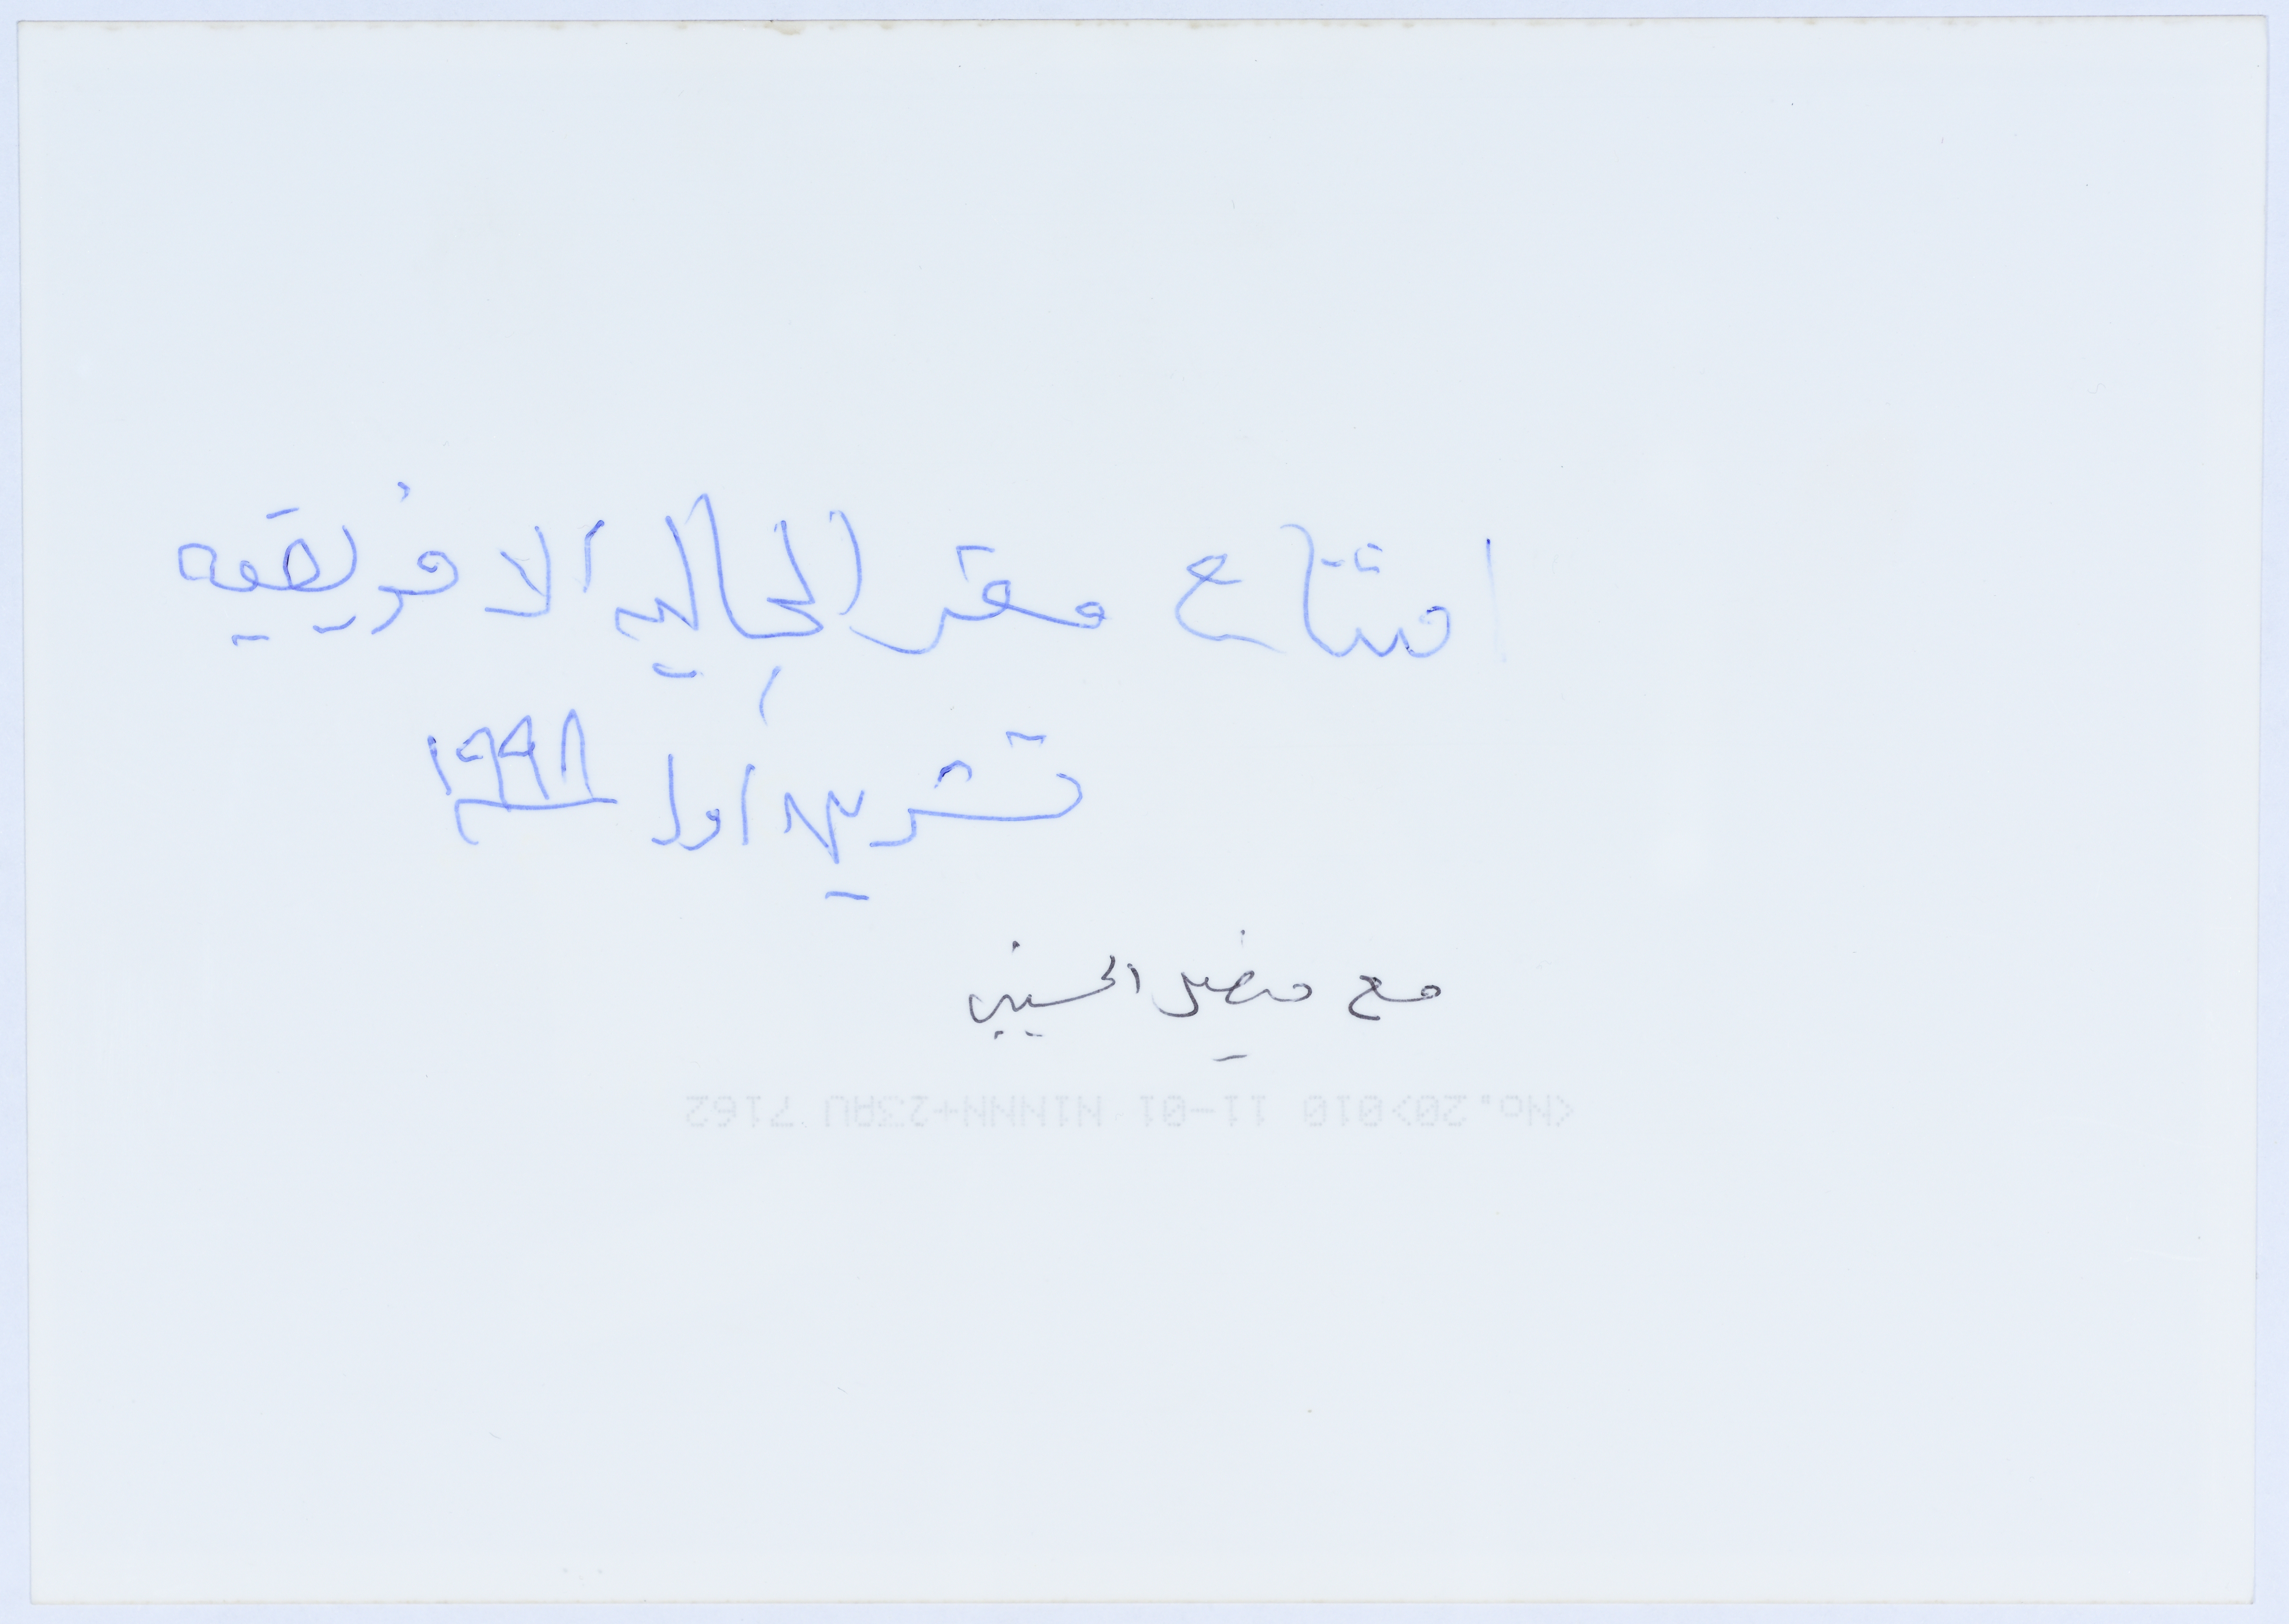 افتتاح مقر الجاليه الافريقيه
تشرين اول ١٩٩٨
مع فيصل الحسيني
<No.20>010 11-01 N1NNN+23AU 7162